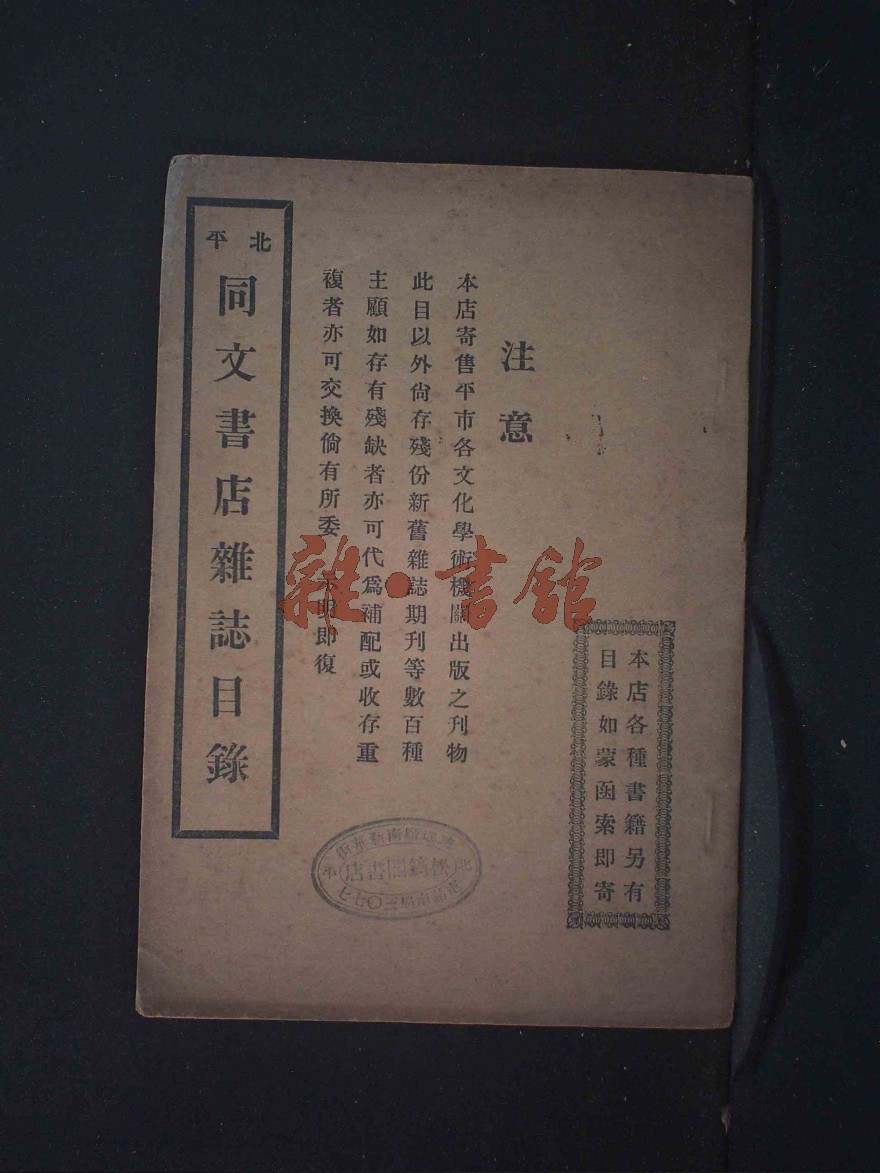 本店各種書籍另有
目錄如蒙函索即寄
注意
本店寄售平市各文化學術機關出版之刊物
此目以外尙存殘份新舊雜誌期刊等數百種
主顧如存有殘缺者亦可代爲補配或收存重
複者亦可交換倘有所委 示明即復
北平
同文書店雜誌目錄
雜·書館